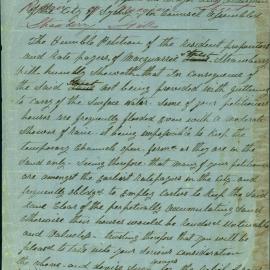 City of Sydney in Council Assembled
The Humble Petition of the resident proprietors
and Rate payers of Macquarie Strawberry
Hill humbly Sheweth that in consequence
of the Said Street not being provided with guttering
to carry of the Surface water. Some of your petitioners
houses are frequently flooded even with a moderate
Shower of rain it being impossible to keep the
temporary channels open formed as they are in the
Sand only. Seeing therefore that many of your petitioners
are amongst the earliest Rate payers in the City and
frequently obliged to Employ carters to keep the Said
Road clear of the perpetually accumulating Sand
otherwise their houses would be rendered untenable
and Valueless. trusting therefore that you will be
pleased to take into your Serious consideration
the above and devise some means